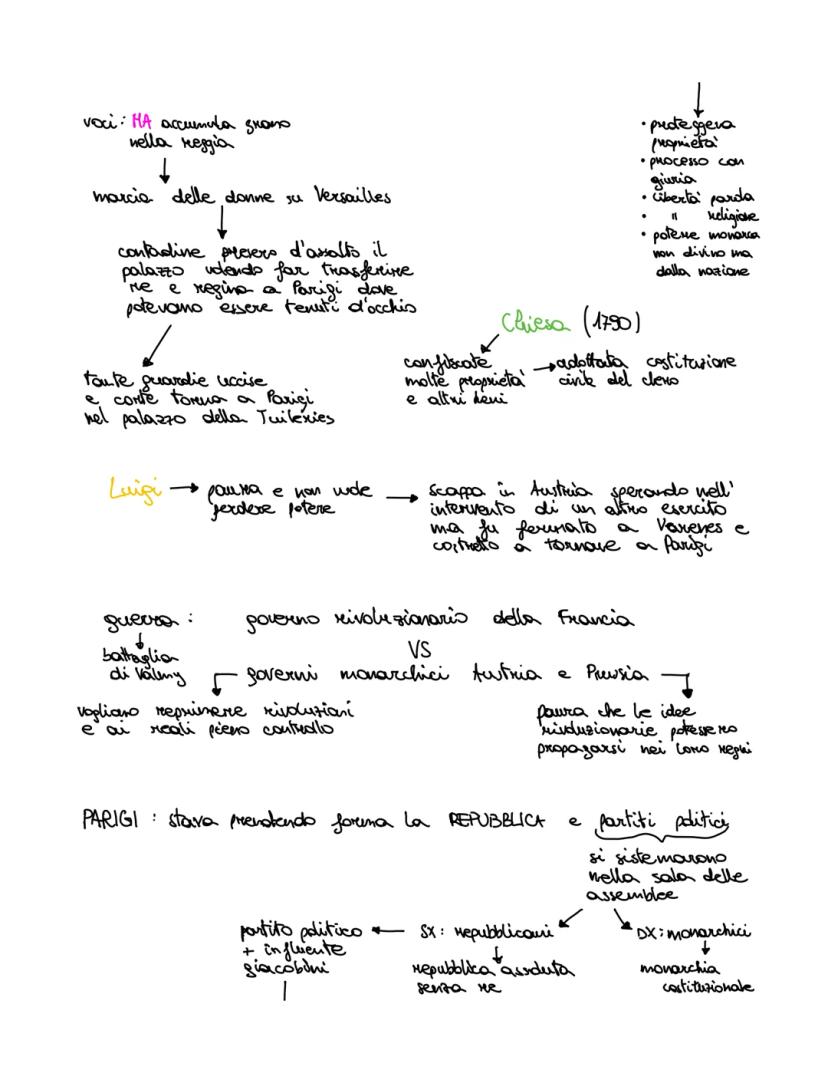 voci: MA accumula grano
nella reggia
marcia delle donne su Versailles
contadine presero d'assalto il
palazzo volendo far trasferire
re e regina a Parigi dove
potevano essere tenuti d'occhio
tante guardie uccise
e corte torna a Parigi
nel palazzo della Tuileries
• proteggeva
proprietà
• processo con
giuria
• libertà parola
• " religione
• potere monarca
non divino ma
dalla nazione
Chiesa (1790)
confiscate
molte proprietà
e altri beni
→ adottata costituzione
civile del clero
Luigi → paura e non vuole
perdere potere
→ scappa in Austria sperando nell'
intervento di un altro esercito
ma fu fermato a Varenes e
costretto a tornare a Parigi
guerra: governo rivoluzionario della Francia
VS
battaglia
di Valmy
governi monarchici Austria e Prussia
vogliano reprimere rivoluzioni
e ai reali pieno controllo
paura che le idee
rivoluzionarie potessero
propagarsi nei loro regni
PARIGI: stava prendendo forma la REPUBBLICA e partiti politici
si sistemarono
nella sala delle
assemblee
partito politico
+ influente
giacobini
← SX: repubblicani
repubblica assoluta
senza re
DX: monarchici
monarchia
costituzionale